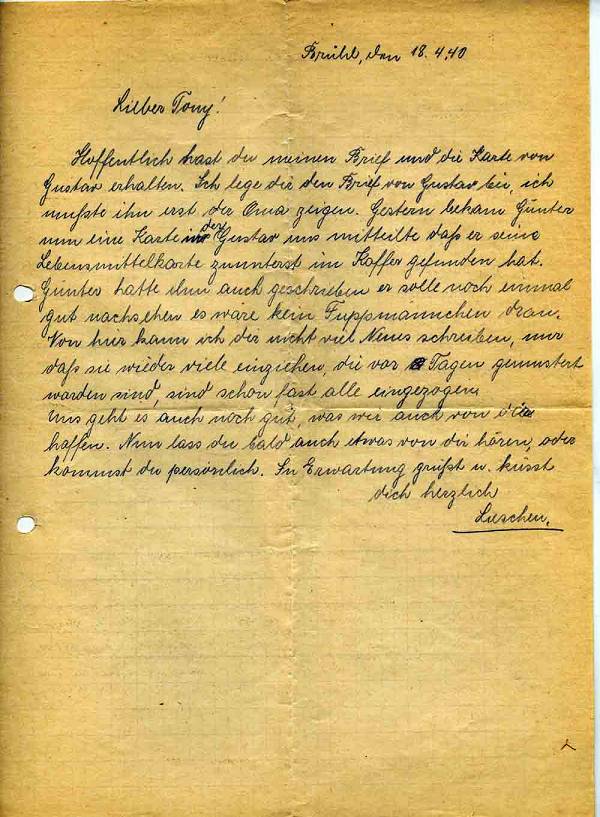 Brühl, den 18.4.40
Lieber Tony!
Hoffentlich hast du meinen Brief und die Karte von
Gustav erhalten. Ich lege dir den Brief von Gustav bei, ich
mußte ihn erst der Oma zeigen. Gestern bekam Günter
nun eine Karte in der Gustav uns mitteilte daß er seine
Lebensmittelkarte zuunterst im Koffer gefunden hat.
Günter hatte ihm auch geschrieben er solle noch einmal
gut nachsehen es wäre kein dran.
Von hier kann ich dir nicht viel Neues schreiben, nur
daß sie wieder viele einziehen, die vor Tagen gemustert
worden sind, sind schon fast alle eingezogen.
Uns geht es auch noch gut, was wir auch von dir
hoffen. Nun lass du bald auch etwas von dir hören, oder
kommst du persönlich. In Erwartung grüßt u. küsst
dich herzlich
Lieschen.